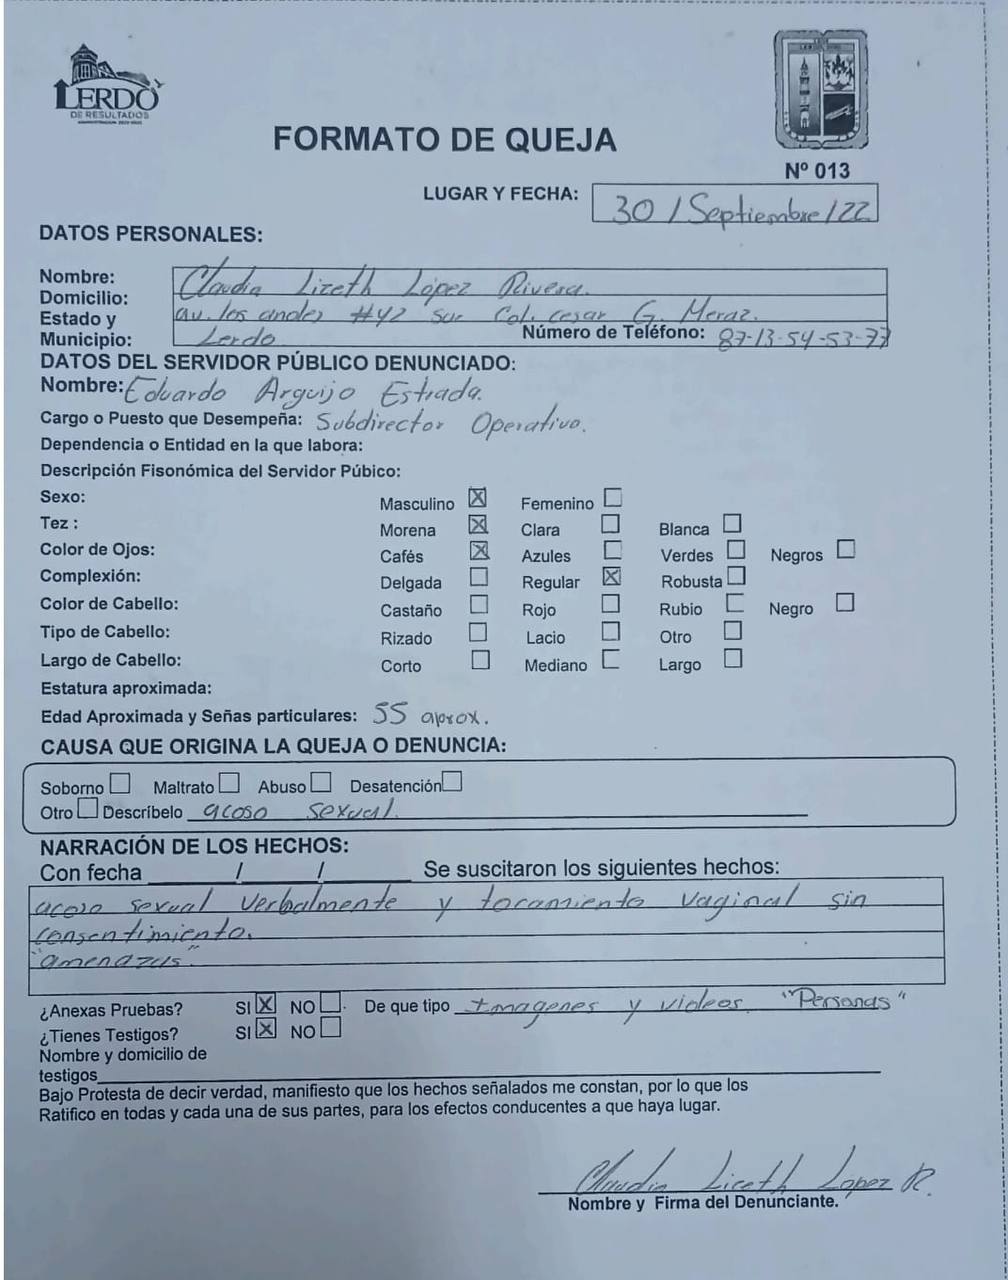 LERDO
DE RESULTADOS
FORMATO DE QUEJA
Nº 013
LUGAR Y FECHA: 30 / Septiembre / 22
DATOS PERSONALES:
Nombre: Claudia Lizeth López Rivera.
Domicilio: av. los andes #42 sur Col. cesar G. Meraz.
Estado y
Municipio: Lerdo Número de Teléfono: 87-13-54-53-77
DATOS DEL SERVIDOR PÚBLICO DENUNCIADO:
Nombre: Eduardo Arguijo Estrada.
Cargo o Puesto que Desempeña: Subdirector Operativo.
Dependencia o Entidad en la que labora:
Descripción Fisonómica del Servidor Púbico:
Sexo: Masculino ☒ Femenino ☐
Tez : Morena ☒ Clara ☐ Blanca ☐
Color de Ojos: Cafés ☒ Azules ☐ Verdes ☐ Negros ☐
Complexión: Delgada ☐ Regular ☒ Robusta ☐
Color de Cabello: Castaño ☐ Rojo ☐ Rubio ☐ Negro ☐
Tipo de Cabello: Rizado ☐ Lacio ☐ Otro ☐
Largo de Cabello: Corto ☐ Mediano ☐ Largo ☐
Estatura aproximada:
Edad Aproximada y Señas particulares: 55 aprox.
CAUSA QUE ORIGINA LA QUEJA O DENUNCIA:
Soborno ☐ Maltrato ☐ Abuso ☐ Desatención ☐
Otro ☐ Descríbelo acoso sexual.
NARRACIÓN DE LOS HECHOS:
Con fecha ______/______/______ Se suscitaron los siguientes hechos:
acoso sexual verbalmente y tocamiento vaginal sin
consentimiento.
"amenazas"
¿Anexas Pruebas? SI ☒ NO ☐. De que tipo Imagenes y videos. "Personas"
¿Tienes Testigos? SI ☒ NO ☐
Nombre y domicilio de
testigos
Bajo Protesta de decir verdad, manifiesto que los hechos señalados me constan, por lo que los
Ratifico en todas y cada una de sus partes, para los efectos conducentes a que haya lugar.
Claudia Liceth López R.
Nombre y Firma del Denunciante.